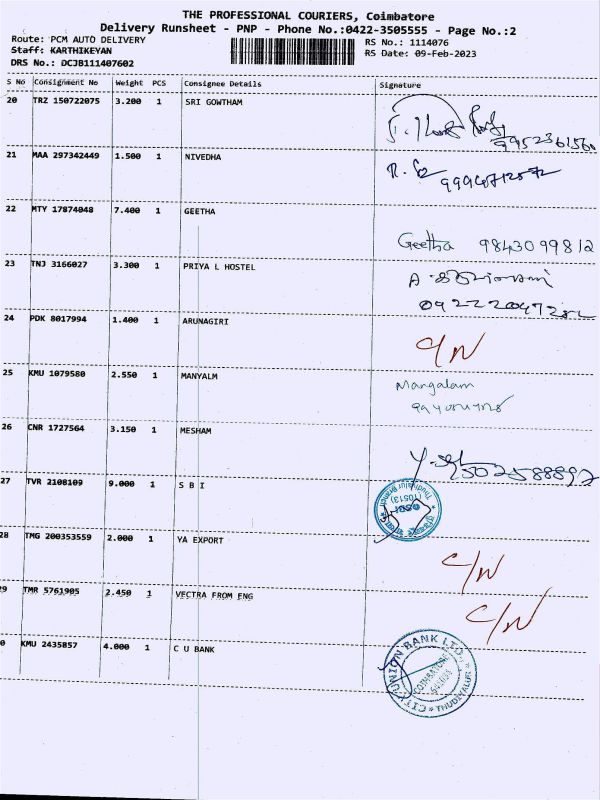 THE PROFESSIONAL COURIERS, Coimbatore
Delivery Runsheet - PNP - Phone No.:0422-3505555 - Page No.:2
Route: PCM AUTO DELIVERY
RS No.: 1114076
Staff: KARTHIKEYAN
RS Date: 09-Feb-2023
DRS No.: DCJB111407602
S No Consignment No Weight PCS Consignee Details Signature
20 TRZ 150722075 3.200 1 SRI GOWTHAM
21 MAA 297342449 1.500 1 NIVEDHA
22 MTY 17874048 7.400 1 GEETHA
Geetha 9843099812
23 TNJ 3166027 3.300 1 PRIYA L HOSTEL
24 PDK 8017994 1.400 1 ARUNAGIRI
C/N
25 KMU 1079580 2.550 1 MANYALM
Mangalam
26 CNR 1727564 3.150 1 MESHAM
27 TVR 2108109 9.000 1 S B I
28 TMG 200353559 2.000 1 YA EXPORT
C/N
29 TMR 5761905 2.450 1 VECTRA FROM ENG
C/N
0 KMU 2435857 4.000 1 C U BANK
CITY UNION BANK LTD.
COIMBATORE
THUDIYALUR